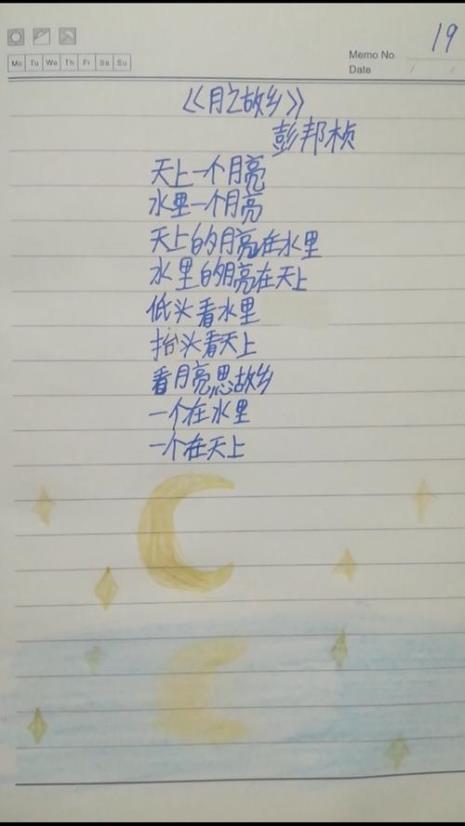 19
Mo Tu We Th Fr Sa Su
Memo No.
Date / /
《月之故乡》
彭邦桢
天上一个月亮
水里一个月亮
天上的月亮在水里
水里的月亮在天上
低头看水里
抬头看天上
看月亮思故乡
一个在水里
一个在天上